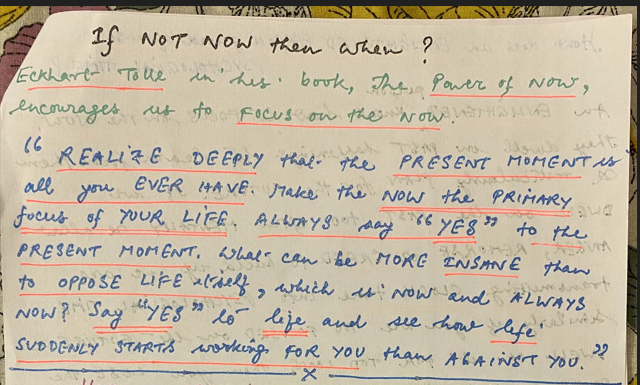 If NOT NOW then when?
Eckhart Tolle in his book, The Power of NOW,
encourages us to FOCUS on the NOW.
" REALIZE DEEPLY that the PRESENT MOMENT is
all you EVER HAVE. Make the NOW the PRIMARY
focus of YOUR LIFE. ALWAYS say "YES" to the
PRESENT MOMENT. What can be MORE INSANE than
to OPPOSE LIFE itself, which is NOW and ALWAYS
NOW? Say "YES" to life and see how life
SUDDENLY STARTS working FOR YOU than AGAINST YOU."
x